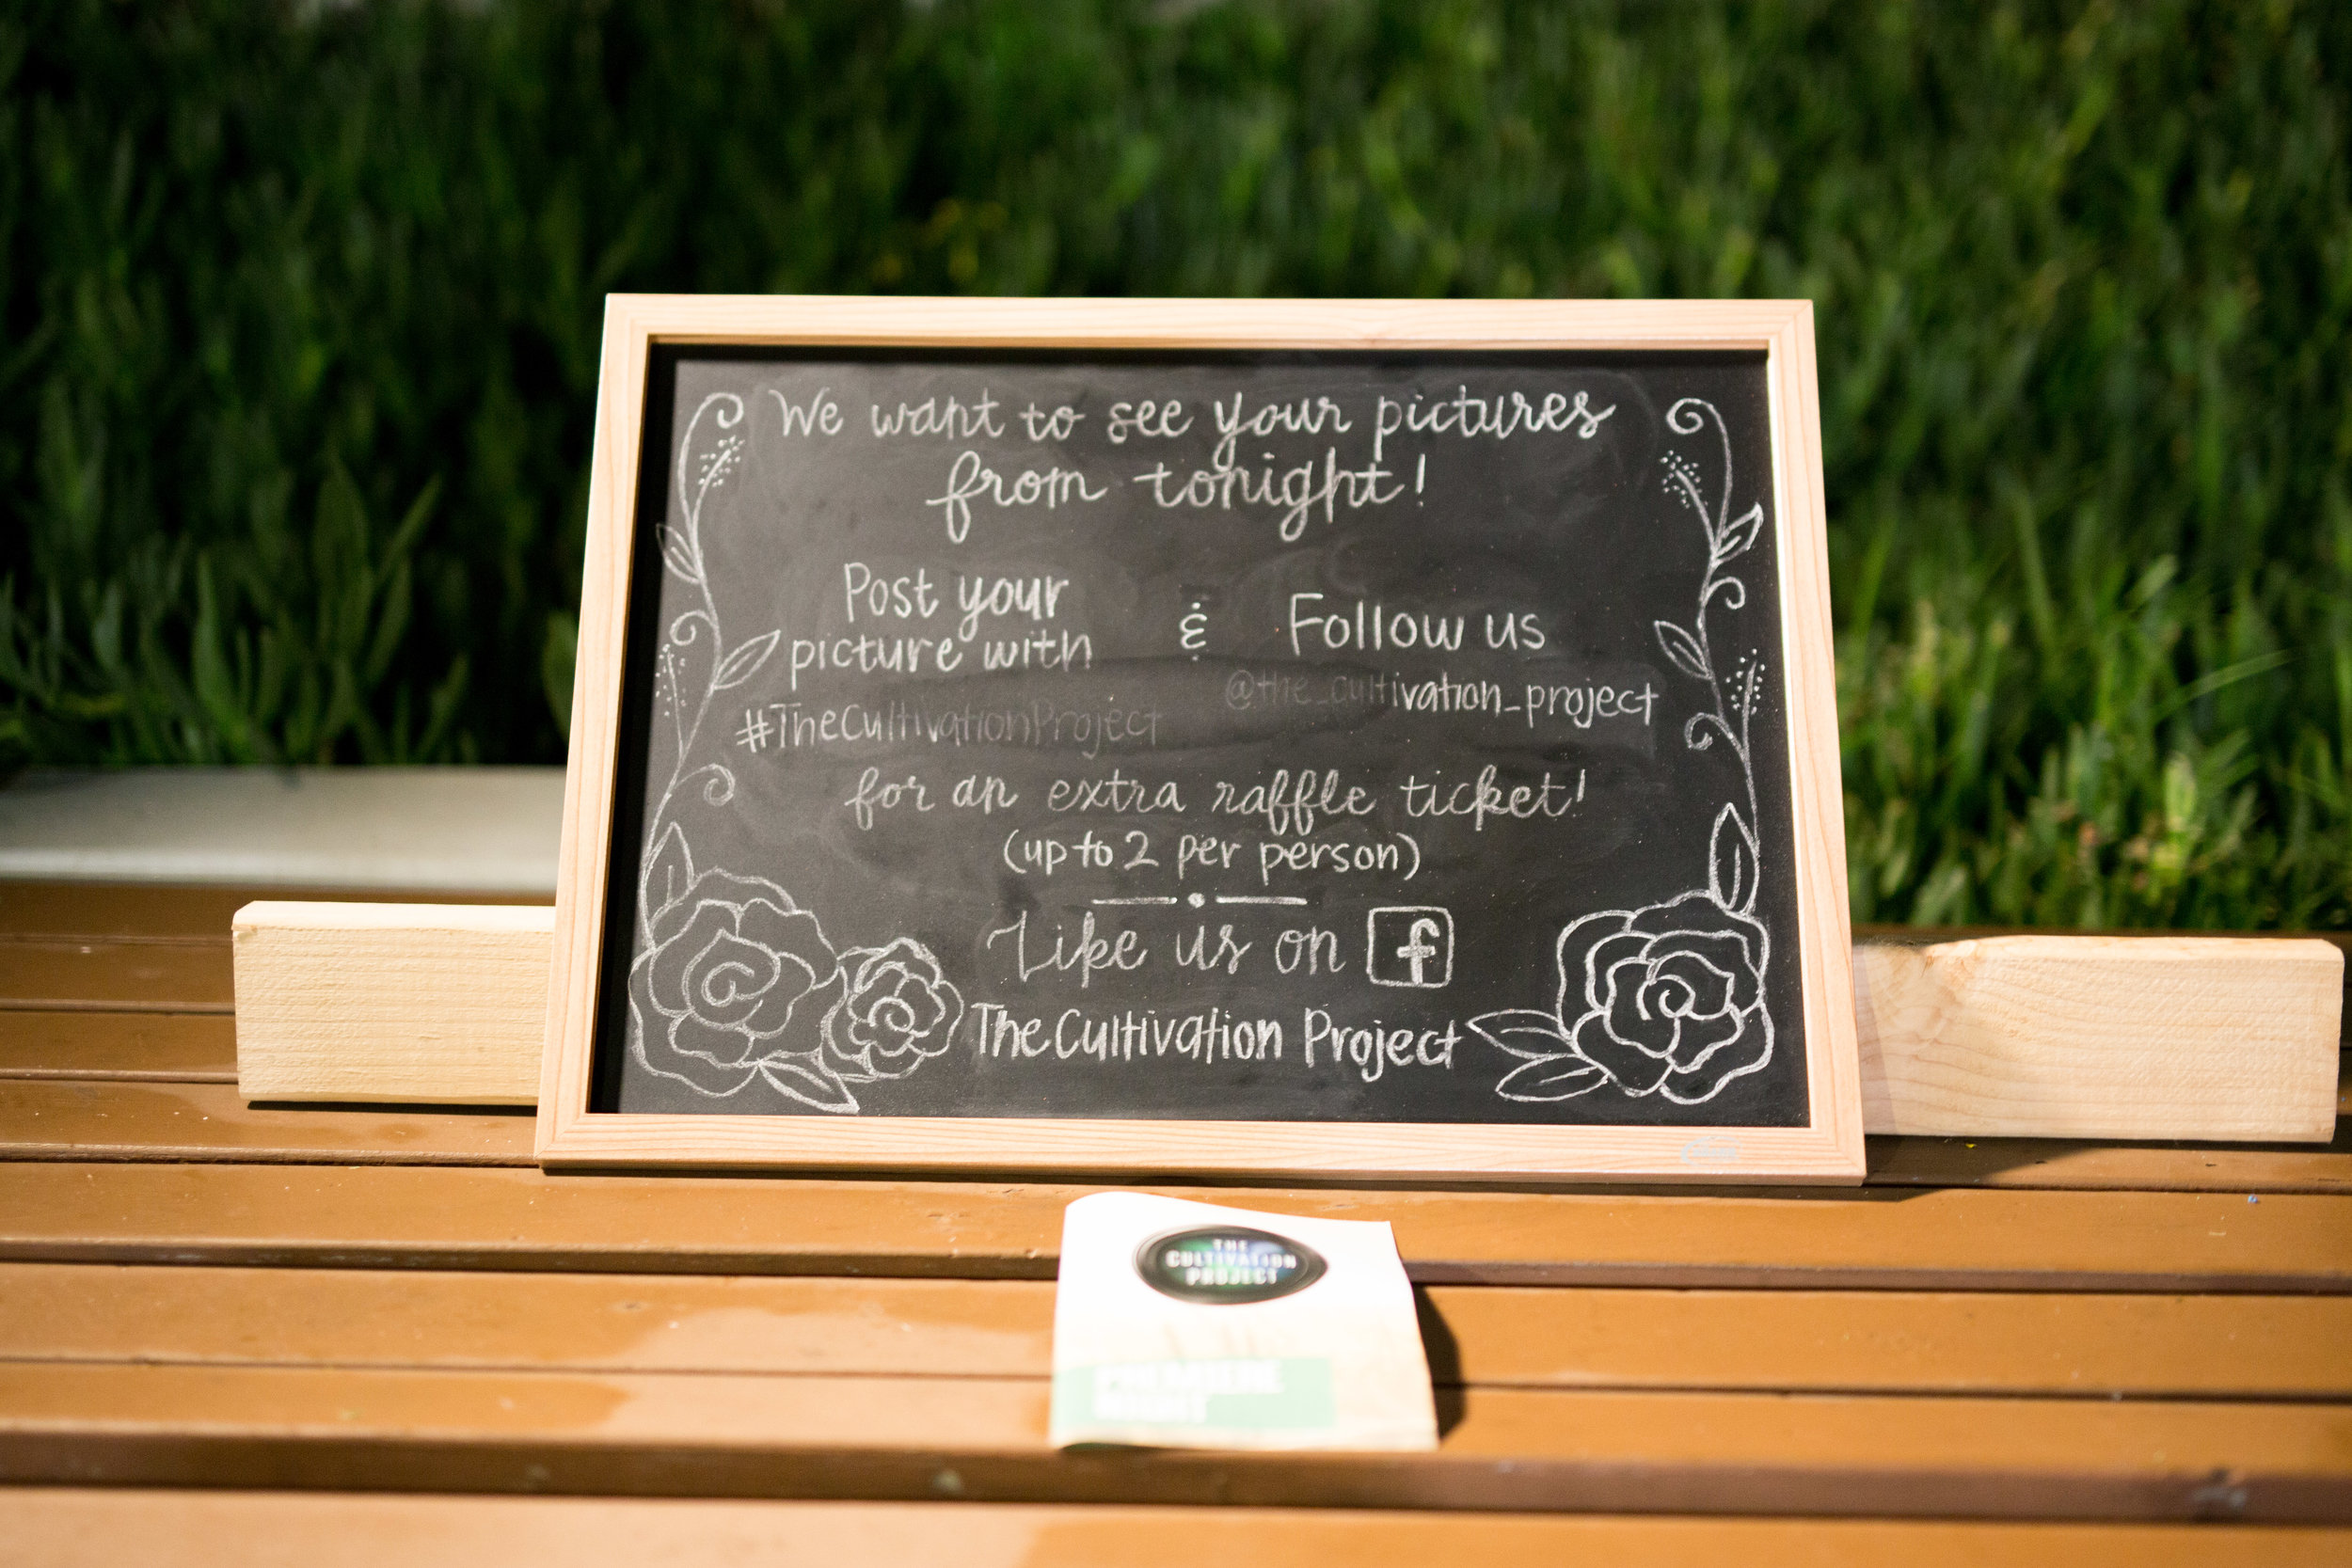 We want to see your pictures
from tonight!
Post your
picture with
#TheCultivationProject
&
Follow us
@the_cultivation_project
for an extra raffle ticket!
(up to 2 per person)
Like us on f
The Cultivation Project
THE
CULTIVATION
PROJECT
PREMIERE
NIGHT